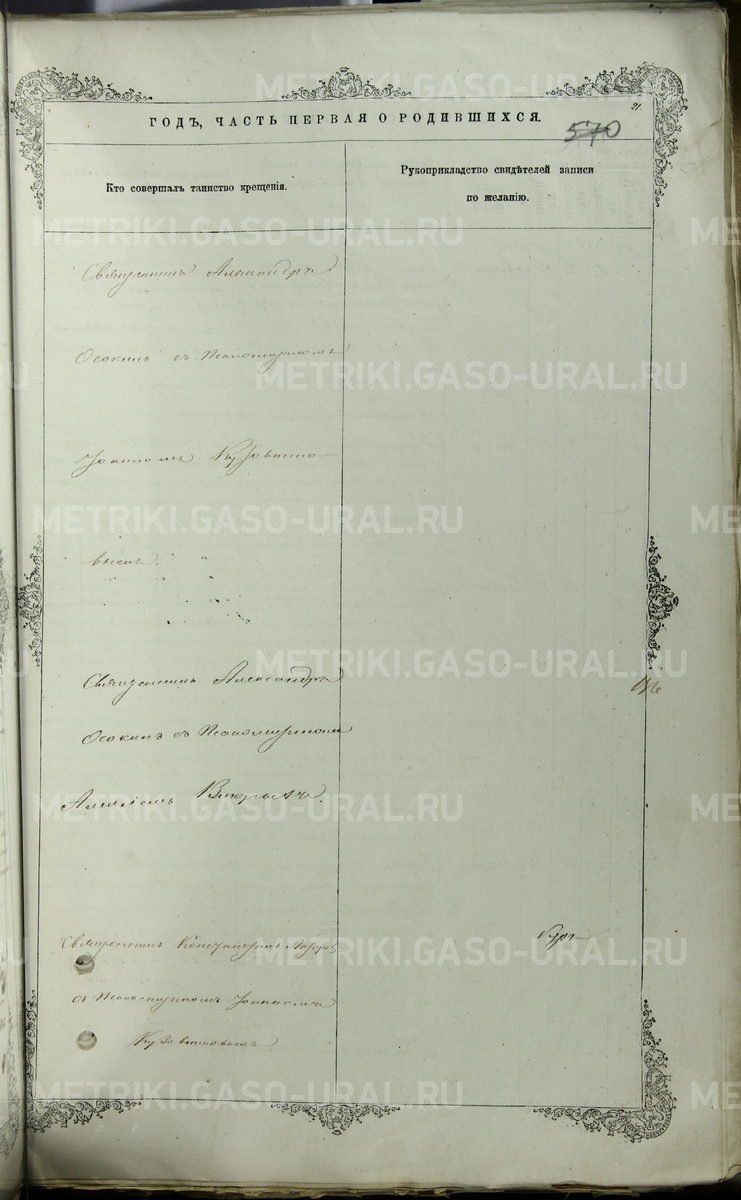 METRIKI.GASO-URAL.RU
21.
ГОДЪ, ЧАСТЬ ПЕРВАЯ О РОДИВШИХСЯ.
570
Кто совершалъ таинство крещенія.
Рукоприкладство свидѣтелей записи
по желанію.
Священникъ Александръ
Осокинъ съ Псаломщикомъ
Іоанномъ
Священникъ Александръ
Осокинъ съ Псаломщикомъ
Священникъ Константинъ
съ Псаломщикомъ Іоанномъ